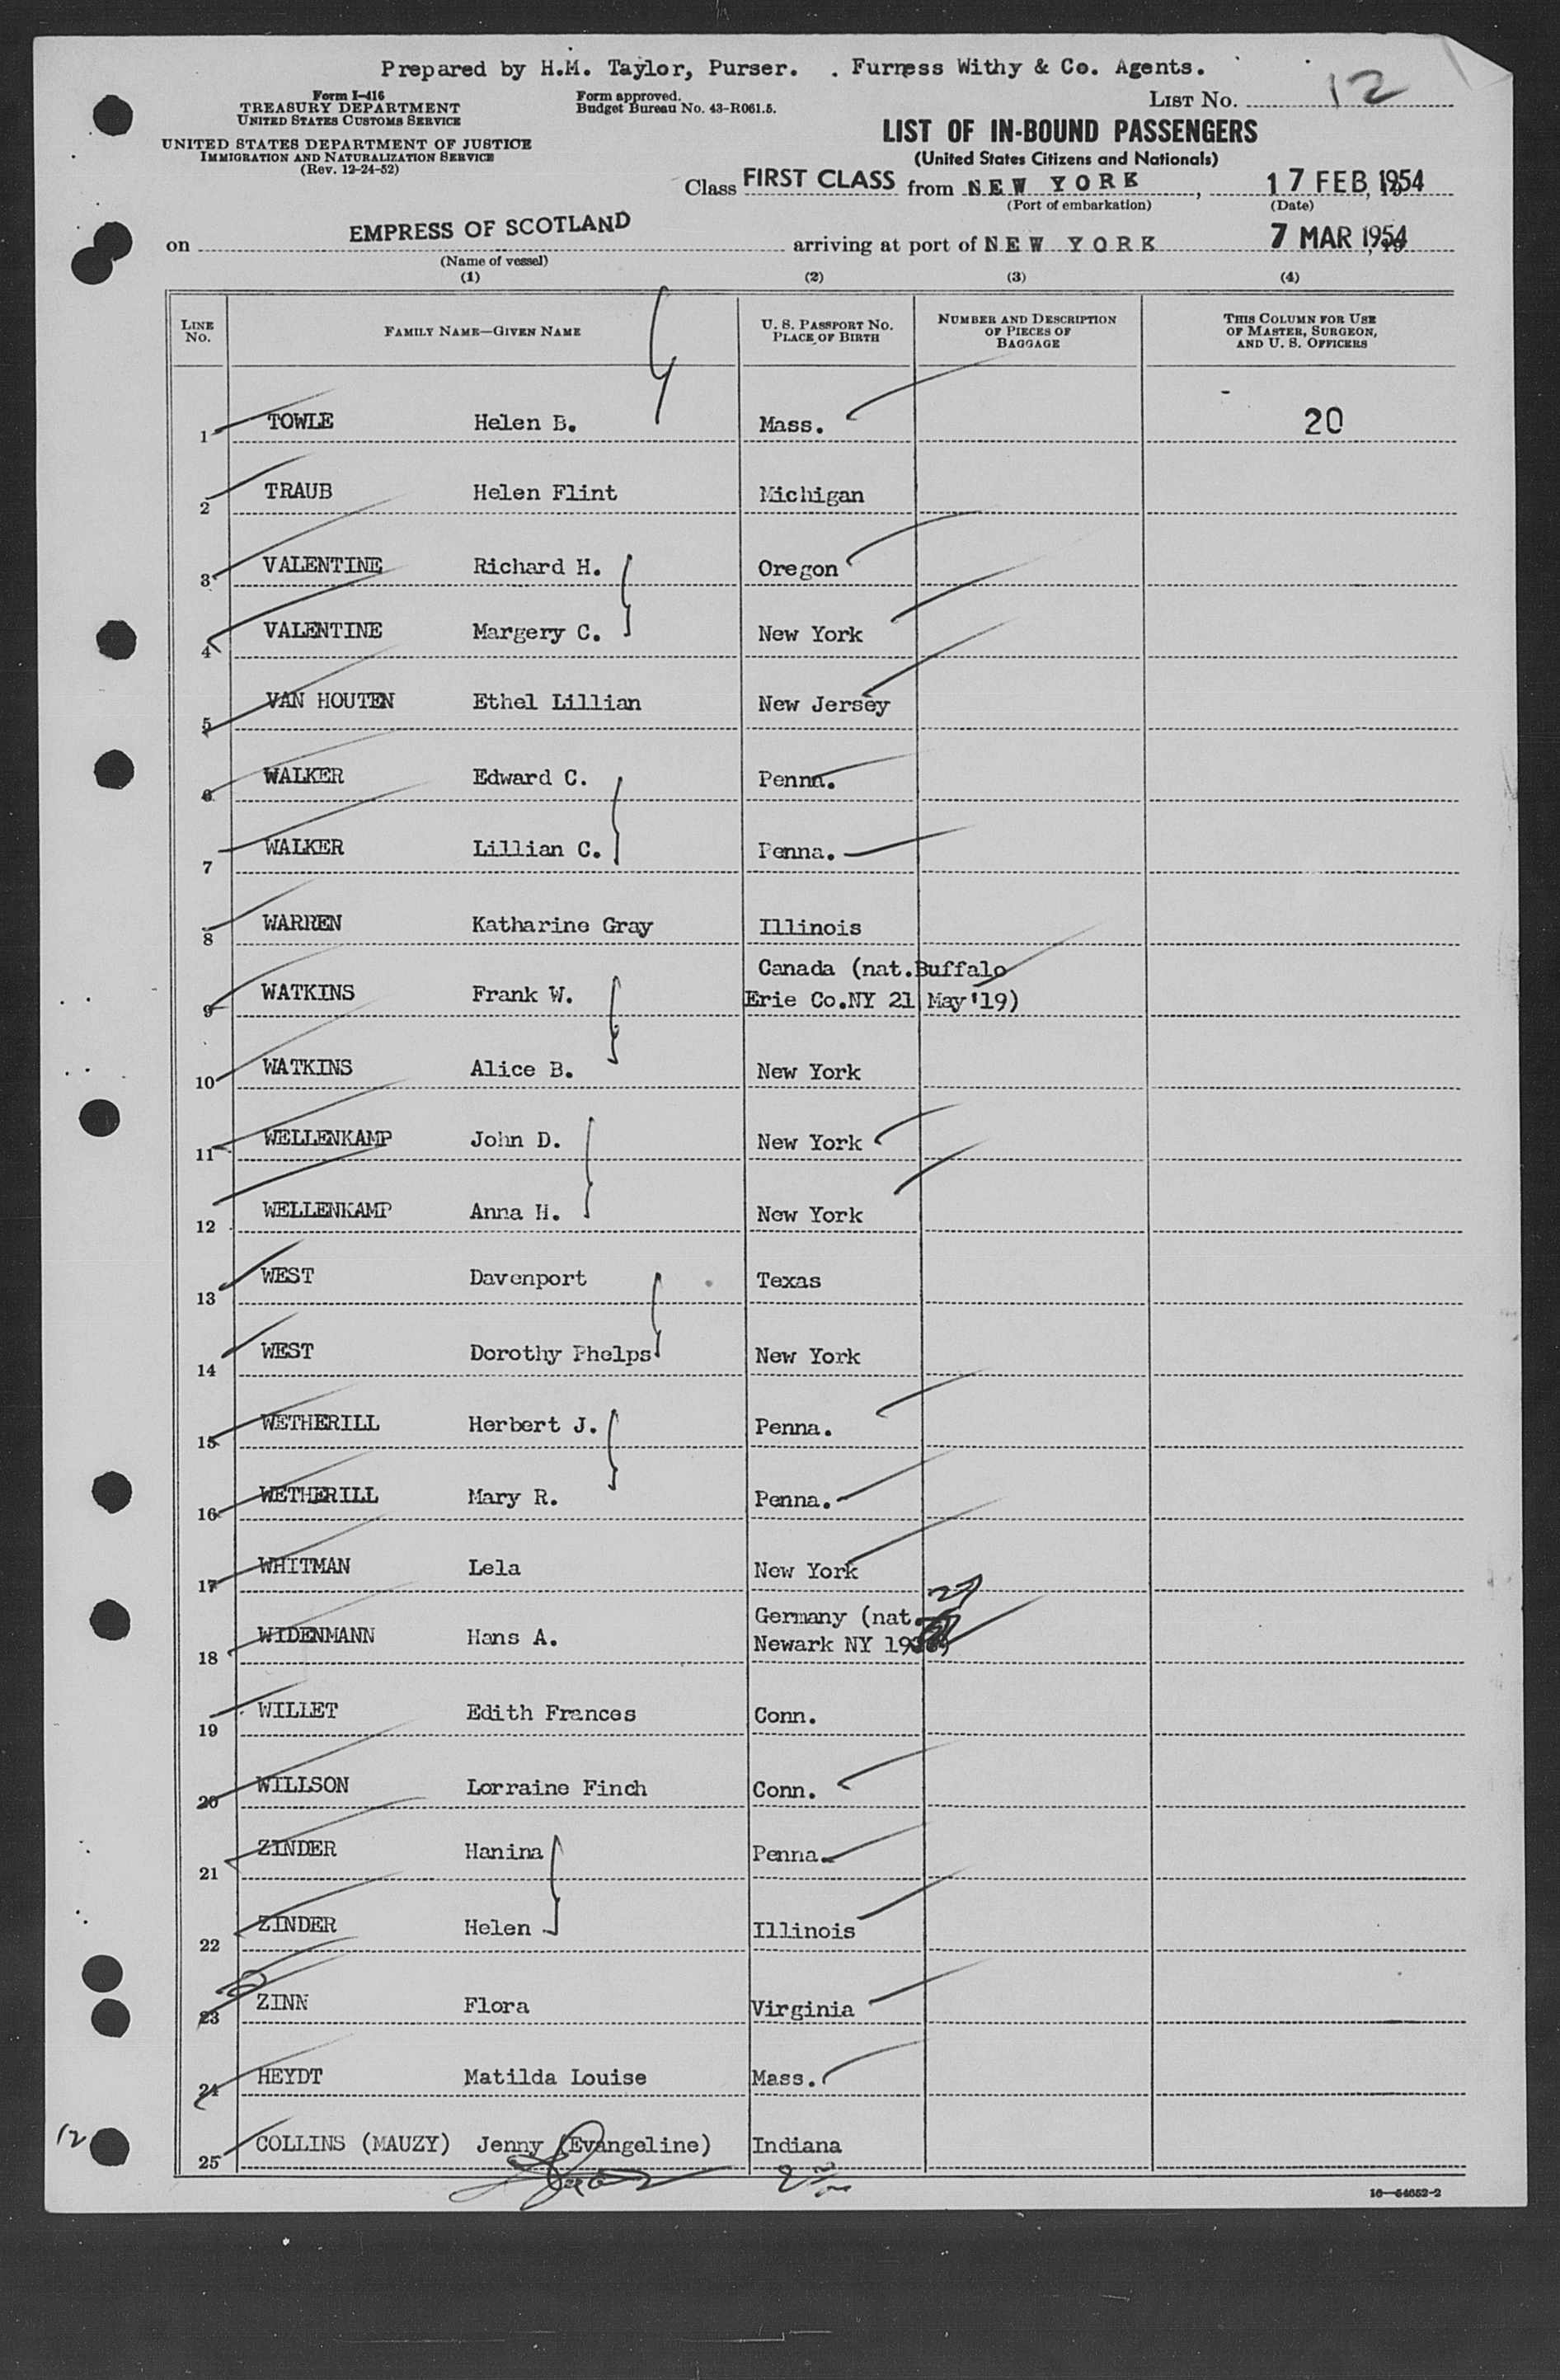 Prepared by H.M. Taylor, Purser. . Furness Withy & Co. Agents.
Form I-416
TREASURY DEPARTMENT
UNITED STATES CUSTOMS SERVICE
UNITED STATES DEPARTMENT OF JUSTICE
IMMIGRATION AND NATURALIZATION SERVICE
(Rev. 12-24-52)
Form approved.
Budget Bureau No. 43-R061.5.
LIST NO. 12
LIST OF IN-BOUND PASSENGERS
(United States Citizens and Nationals)
Class FIRST CLASS from NEW YORK, 17 FEB, 1954
(Port of embarkation) (Date)
on EMPRESS OF SCOTLAND arriving at port of NEW YORK 7 MAR 1954
(Name of vessel)
(1) (2) (3) (4)
LINE NO. FAMILY NAME—GIVEN NAME U. S. PASSPORT NO. PLACE OF BIRTH NUMBER AND DESCRIPTION OF PIECES OF BAGGAGE THIS COLUMN FOR USE OF MASTER, SURGEON, AND U. S. OFFICERS
1 TOWLE Helen B. Mass. 20
2 TRAUB Helen Flint Michigan
3 VALENTINE Richard H. Oregon
4 VALENTINE Margery C. New York
5 VAN HOUTEN Ethel Lillian New Jersey
6 WALKER Edward C. Penna.
7 WALKER Lillian C. Penna.
8 WARREN Katharine Gray Illinois
9 WATKINS Frank W. Canada (nat.Buffalo
Erie Co.NY 21 May '19)
10 WATKINS Alice B. New York
11 WELLENKAMP John D. New York
12 WELLENKAMP Anna H. New York
13 WEST Davenport Texas
14 WEST Dorothy Phelps New York
15 WETHERILL Herbert J. Penna.
16 WETHERILL Mary R. Penna.
17 WHITMAN Lela New York
18 WIDENMANN Hans A. Germany (nat.
Newark NY 19 27
19 WILLET Edith Frances Conn.
20 WILLSON Lorraine Finch Conn.
21 ZINDER Hanina Penna.
22 ZINDER Helen Illinois
23 ZINN Flora Virginia
24 HEYDT Matilda Louise Mass.
12
25 COLLINS (MAUZY) Jenny (Evangeline) Indiana
16—64652-2